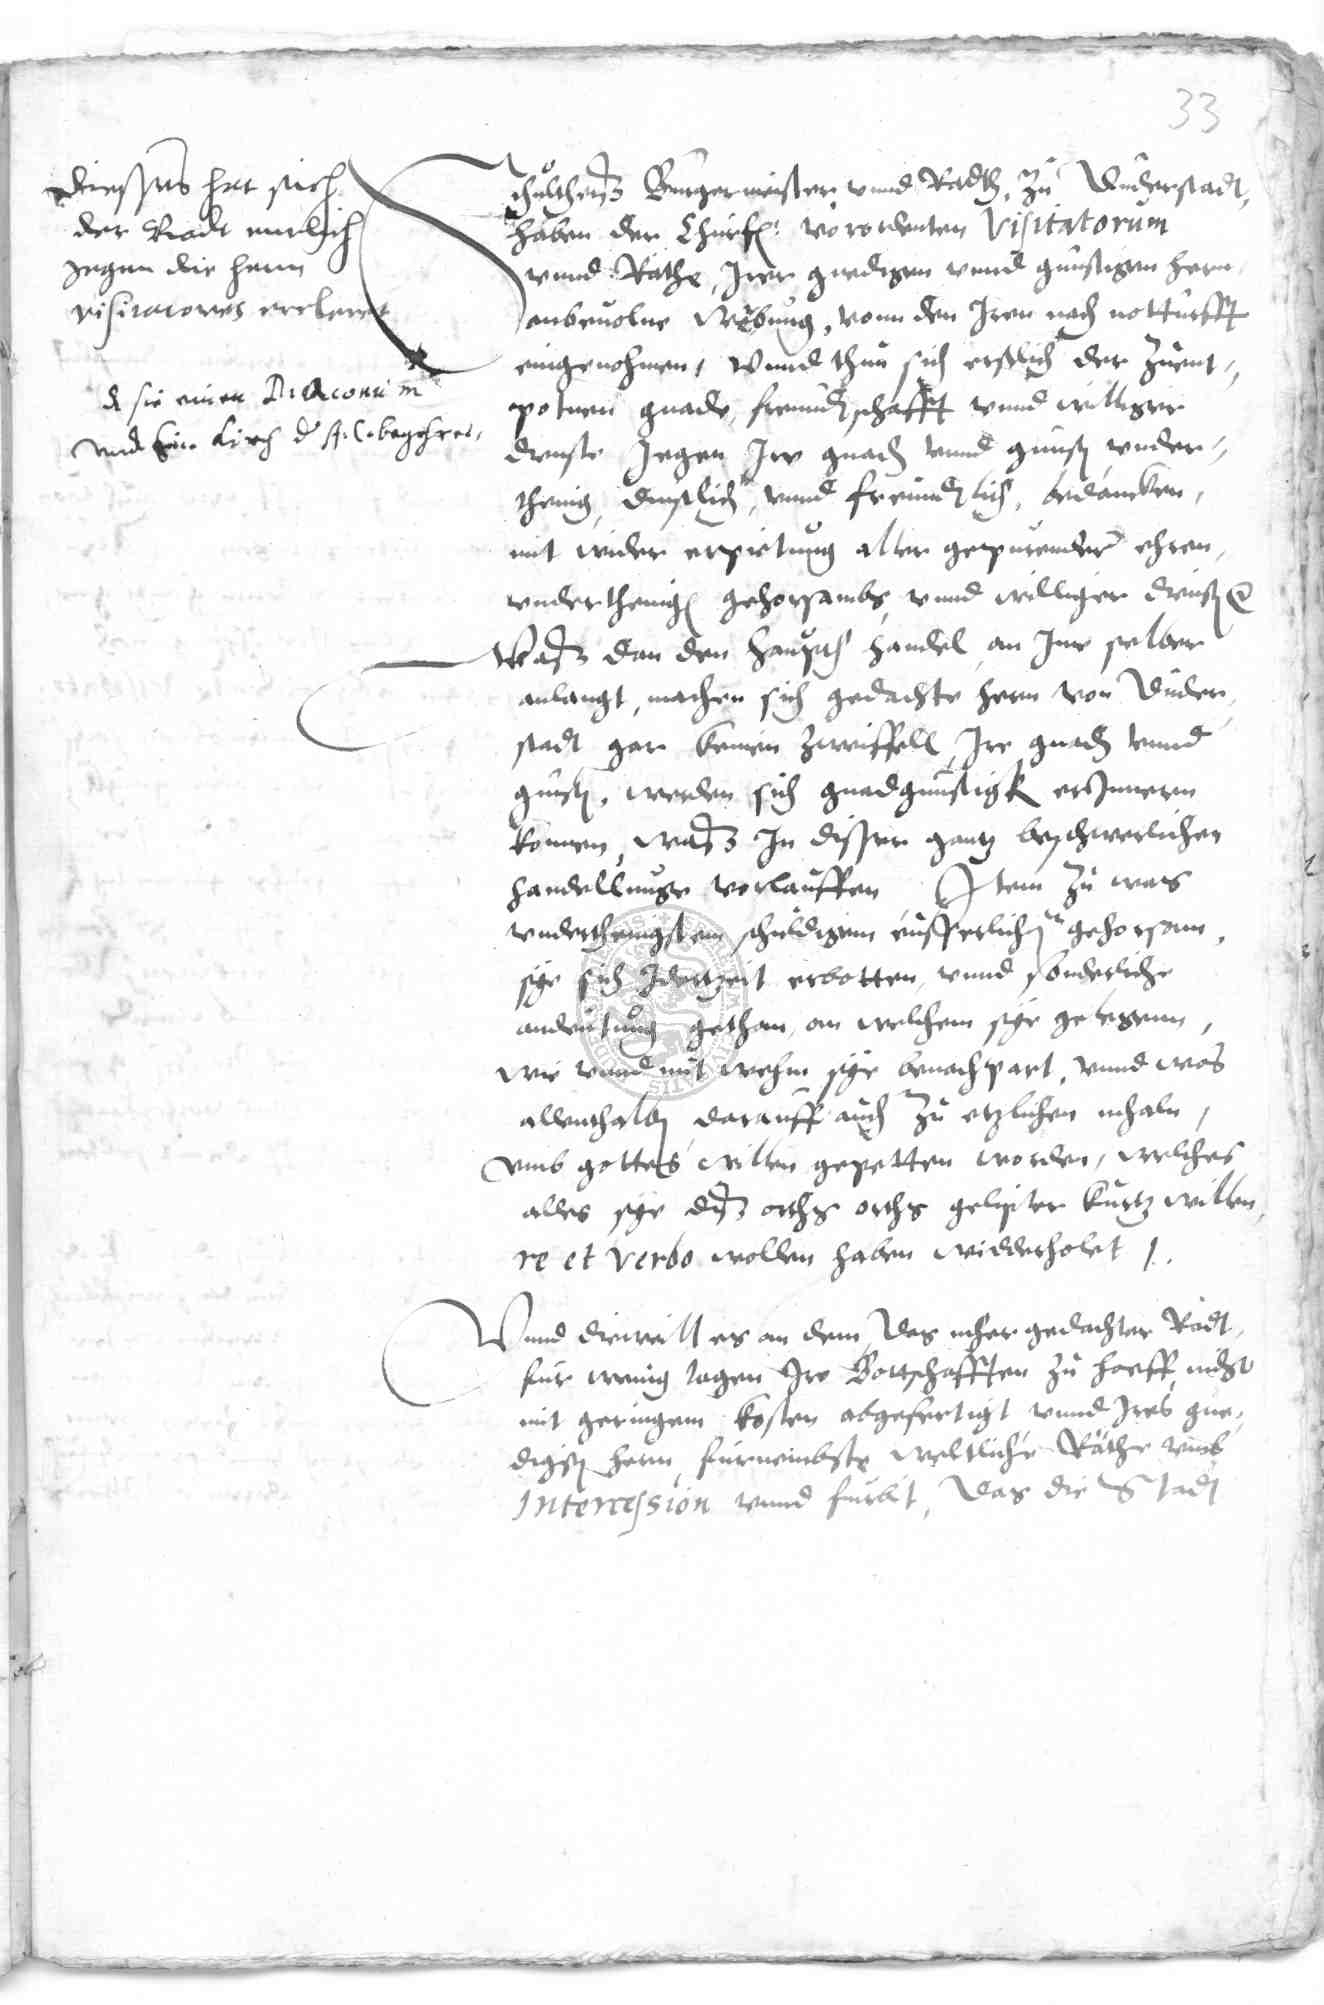 33
Diesses hat sich
der Radt entlich
Jegen die hern
visitatores ercleret
d sie einen Diaconum
vnd kirch d A. C. begehret
Schultheiß Burgermeister vnnd Radth, zu Duderstadt,
haben der Churf: vorordenten Visitatorum
vnnd Rethe, Irer gnedigen vnnd gunstigen hern
anbeuolne Werbung, vonn den Iren nach notturfft
eingenohmen, Vnnd thun sich erstlich der zuent-
potnen gnade, freundschafft vnnd williger
dienste Jegen Ire gnad vnnd gunst vnder-
thenig, dinstlich, vnnd freundtlich, bedancken,
mit wider erpietung aller gepurender ehren,
vnderthenigs gehorsambs vnnd williger dienst
Waß dan den haupt handel an Ime selber
anlangt, machen sich gedachte hern von Duder-
stadt gar keinen zweiffell Ire gnad vnnd
gunst, werden sich gnadgunstigk erInnern
konnen, waß In disser gantz beschwerlichen
handellunge vorlauffen Item zu was
vnderthenigstem schuldigem eusserlichem gehorsam,
sye sich Jderzeit erbotten, vnnd sonderliche
andeutung gethan, an welchem sye gelegenn,
wie vnnd mit wehm sye benachpart, vnnd was
allenthalben darauff auch zu etzlichen mhaln,
vmb gottes willen gepetten worden, welches
alles sye diß orths orths geliepter kurtz willen,
re et verbo wollen haben widderholet /.
Vnnd dieweill es an dem, Das mher gedachter Radt,
fur wenig tagen Ire Bottschafften zu hoeff nicht
mit geringem kosten abgefertigt vnnd Ires gne-
digsten hern, furnembste weltliche Räthe vmb
Intercession vnnd furbit, Das die Stadt